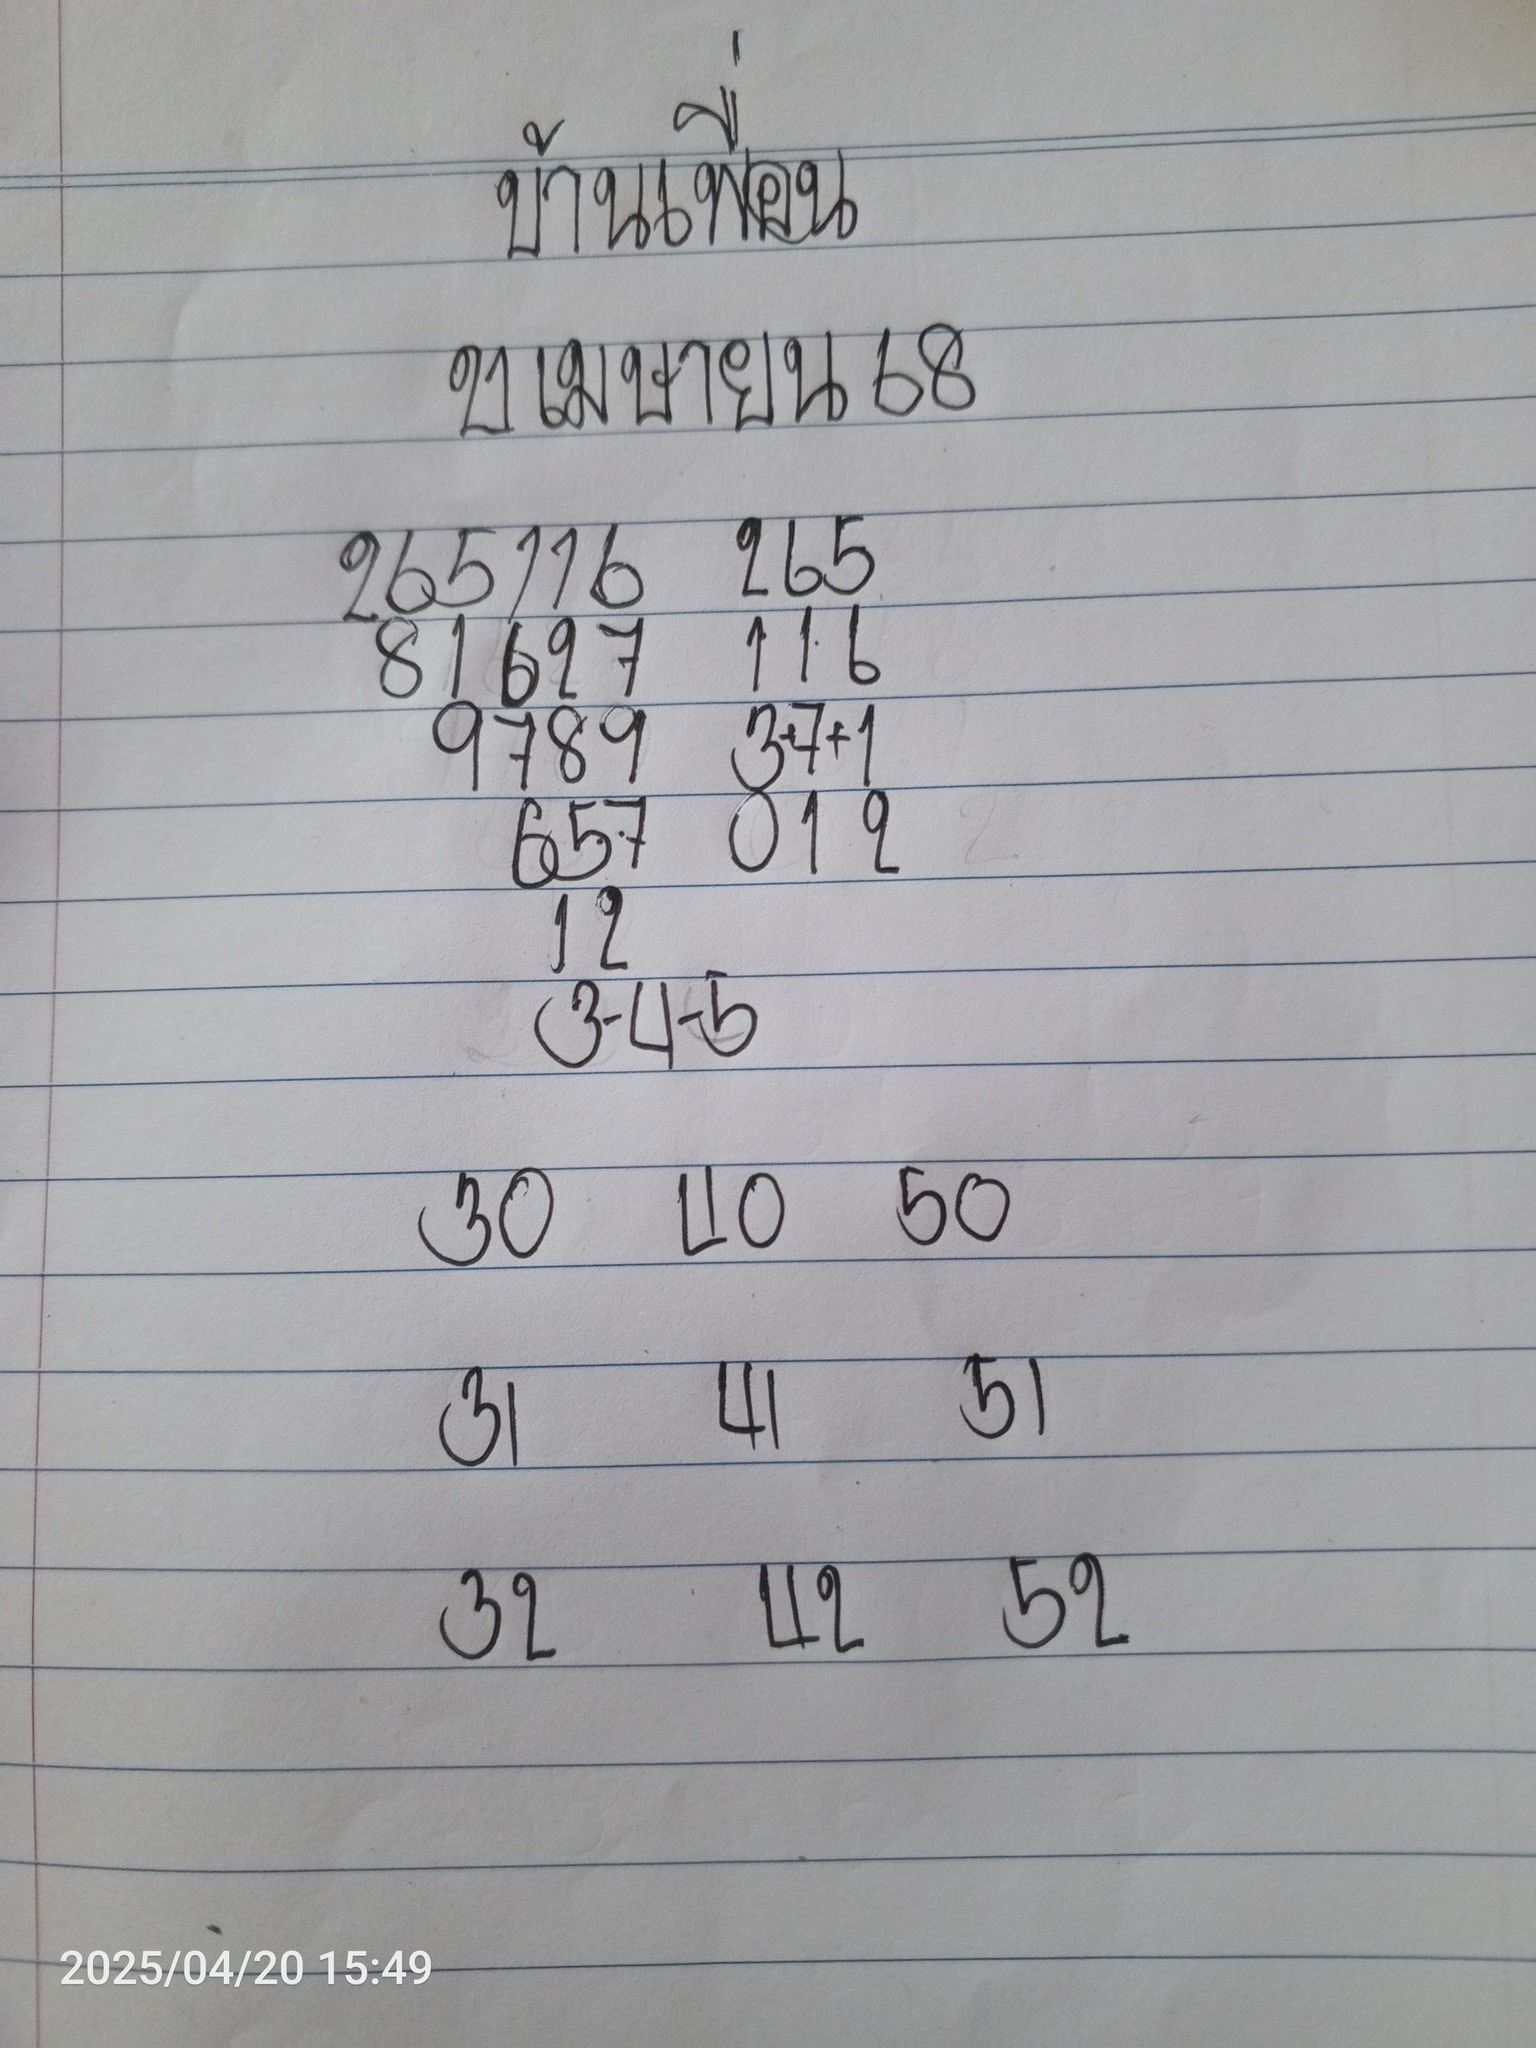 บ้านเพื่อน
ข เมษายน 68
265116 265
81627 116
9789 3+7+1
657 012
12
3-4-5
30 40 50
31 41 51
32 42 52
2025/04/20 15:49